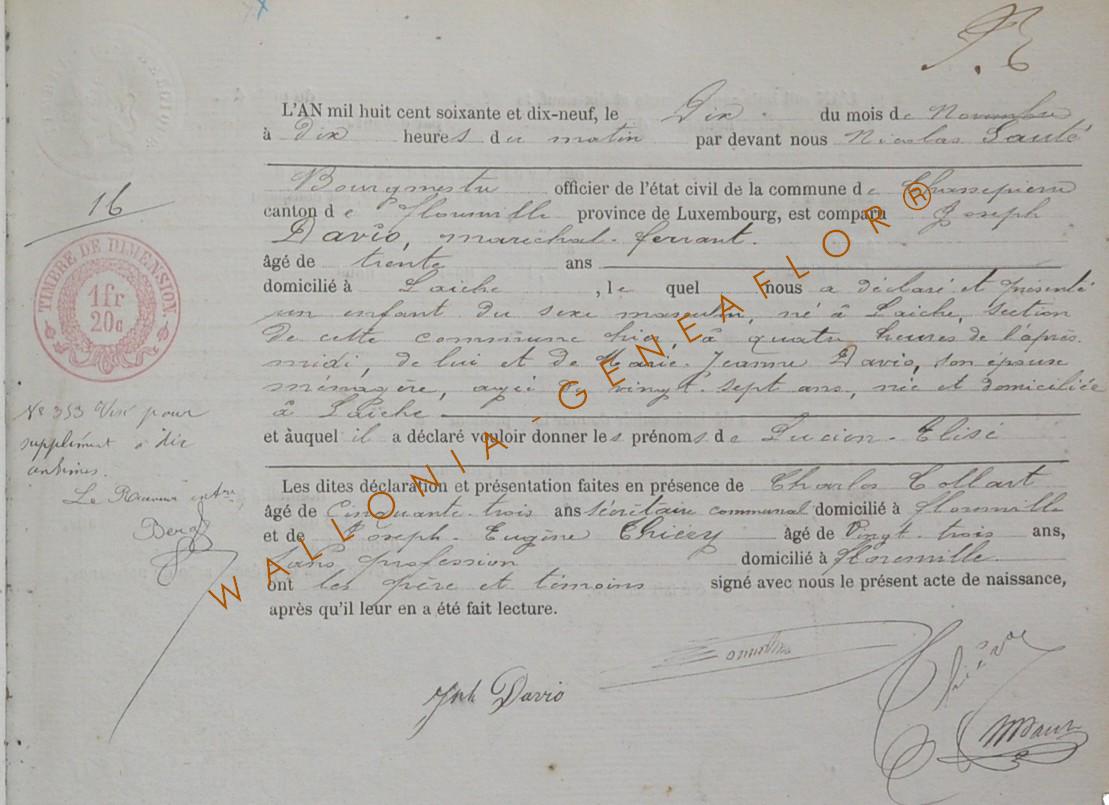 L'AN mil huit cent soixante et dix-neuf, le Dix du mois de Novembre
à Dix heures du matin par devant nous Nicolas Saulé
Bourgmestre officier de l'état civil de la commune de Chassepierre
canton de Florenville province de Luxembourg, est comparu Joseph
Davio, maréchal-ferrant.
âgé de trente ans
domicilié à Laiche, le quel nous a déclaré et présenté
un enfant du sexe masculin, né à Laiche, section
de cette commune hier, à quatre heures de l'après
midi, de lui et de Marie-Jeanne Davio, son épouse
ménagère, agée de vingt-sept ans, née et domiciliée
à Laiche
et auquel il a déclaré vouloir donner les prénoms de Lucien-Elisé
Les dites déclaration et présentation faites en présence de Charles Collart
âgé de Cinquante-trois ans secrétaire communal domicilié à Florenville
et de Joseph-Eugène Thiéry âgé de Vingt-trois ans,
sans profession domicilié à Florenville
ont les père et témoins signé avec nous le présent acte de naissance,
après qu'il leur en a été fait lecture.
16
TIMBRE DE DIMENSION
1 fr
20 c
N° 353 Visé pour
supplément à dix
centimes.
Le Receveur
Berg
Jph Davio
WALLONIA-GENEAFLOR®